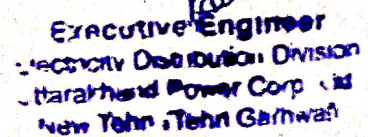 Executive Engineer
Electricity Distribution Division
Uttarakhand Power Corp. Ltd
New Tehri, Tehri Garhwal